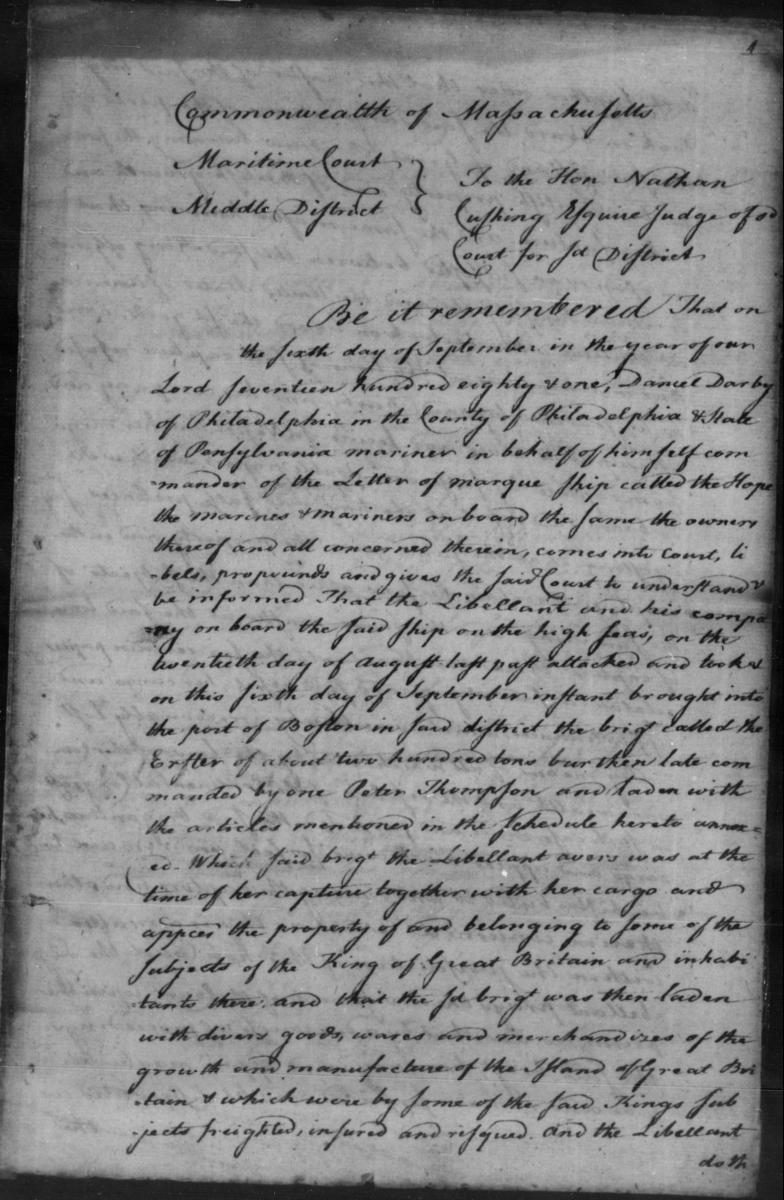 1
Commonwealth of Massachusetts
Maritime Court
Middle District
To the Hon Nathan
Cushing Esquire Judge of sd
Court for sd District
Be it remembered That on
the sixth day of September in the year of our
Lord seventeen hundred eighty & one, Daniel Darby
of Philadelphia in the County of Philadelphia & State
of Pensylvania mariner in behalf of himself com
mander of the Letter of marque ship called the Hope
the marines & mariners on board the same the owners
thereof and all concerned therein, comes into Court, li
-bels, propounds and gives the said Court to understand &
be informed That the Libellant and his compa
-ny on board the said ship on the high seas, on the
twentieth day of August last past attacked and took &
on this sixth day of September instant brought into
the port of Boston in said district the brigt called the
Erster of about two hundred tons burthen late com
manded by one Peter Thompson and laden with
the articles mentioned in the schedule hereto annex=
ed. Which said brigt the Libellant avers was at the
time of her capture together with her cargo and
appces the property of and belonging to some of the
subjects of the King of Great Britain and inhabi
tants there. and that the sd brigt was then laden
with divers goods, wares and merchandizes of the
growth and manufacture of the Island of Great Bri
-tain & which were by some of the said Kings sub
-jects freighted, insured and risqued. And the Libellant
doth